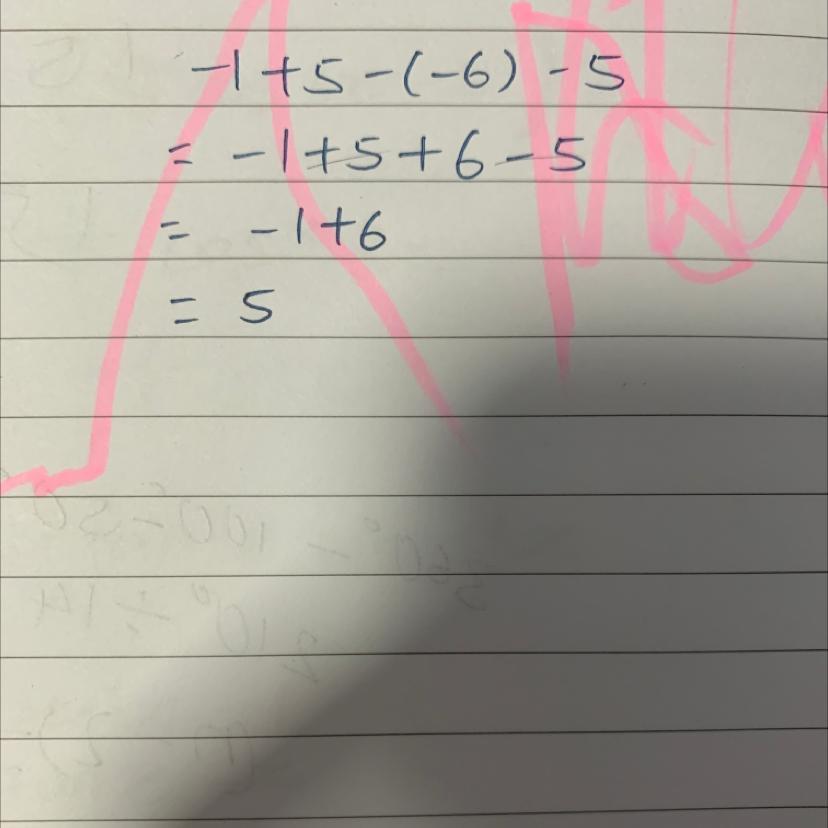 -1+5-(-6)-5
= -1+5+6-5
= -1+6
= 5